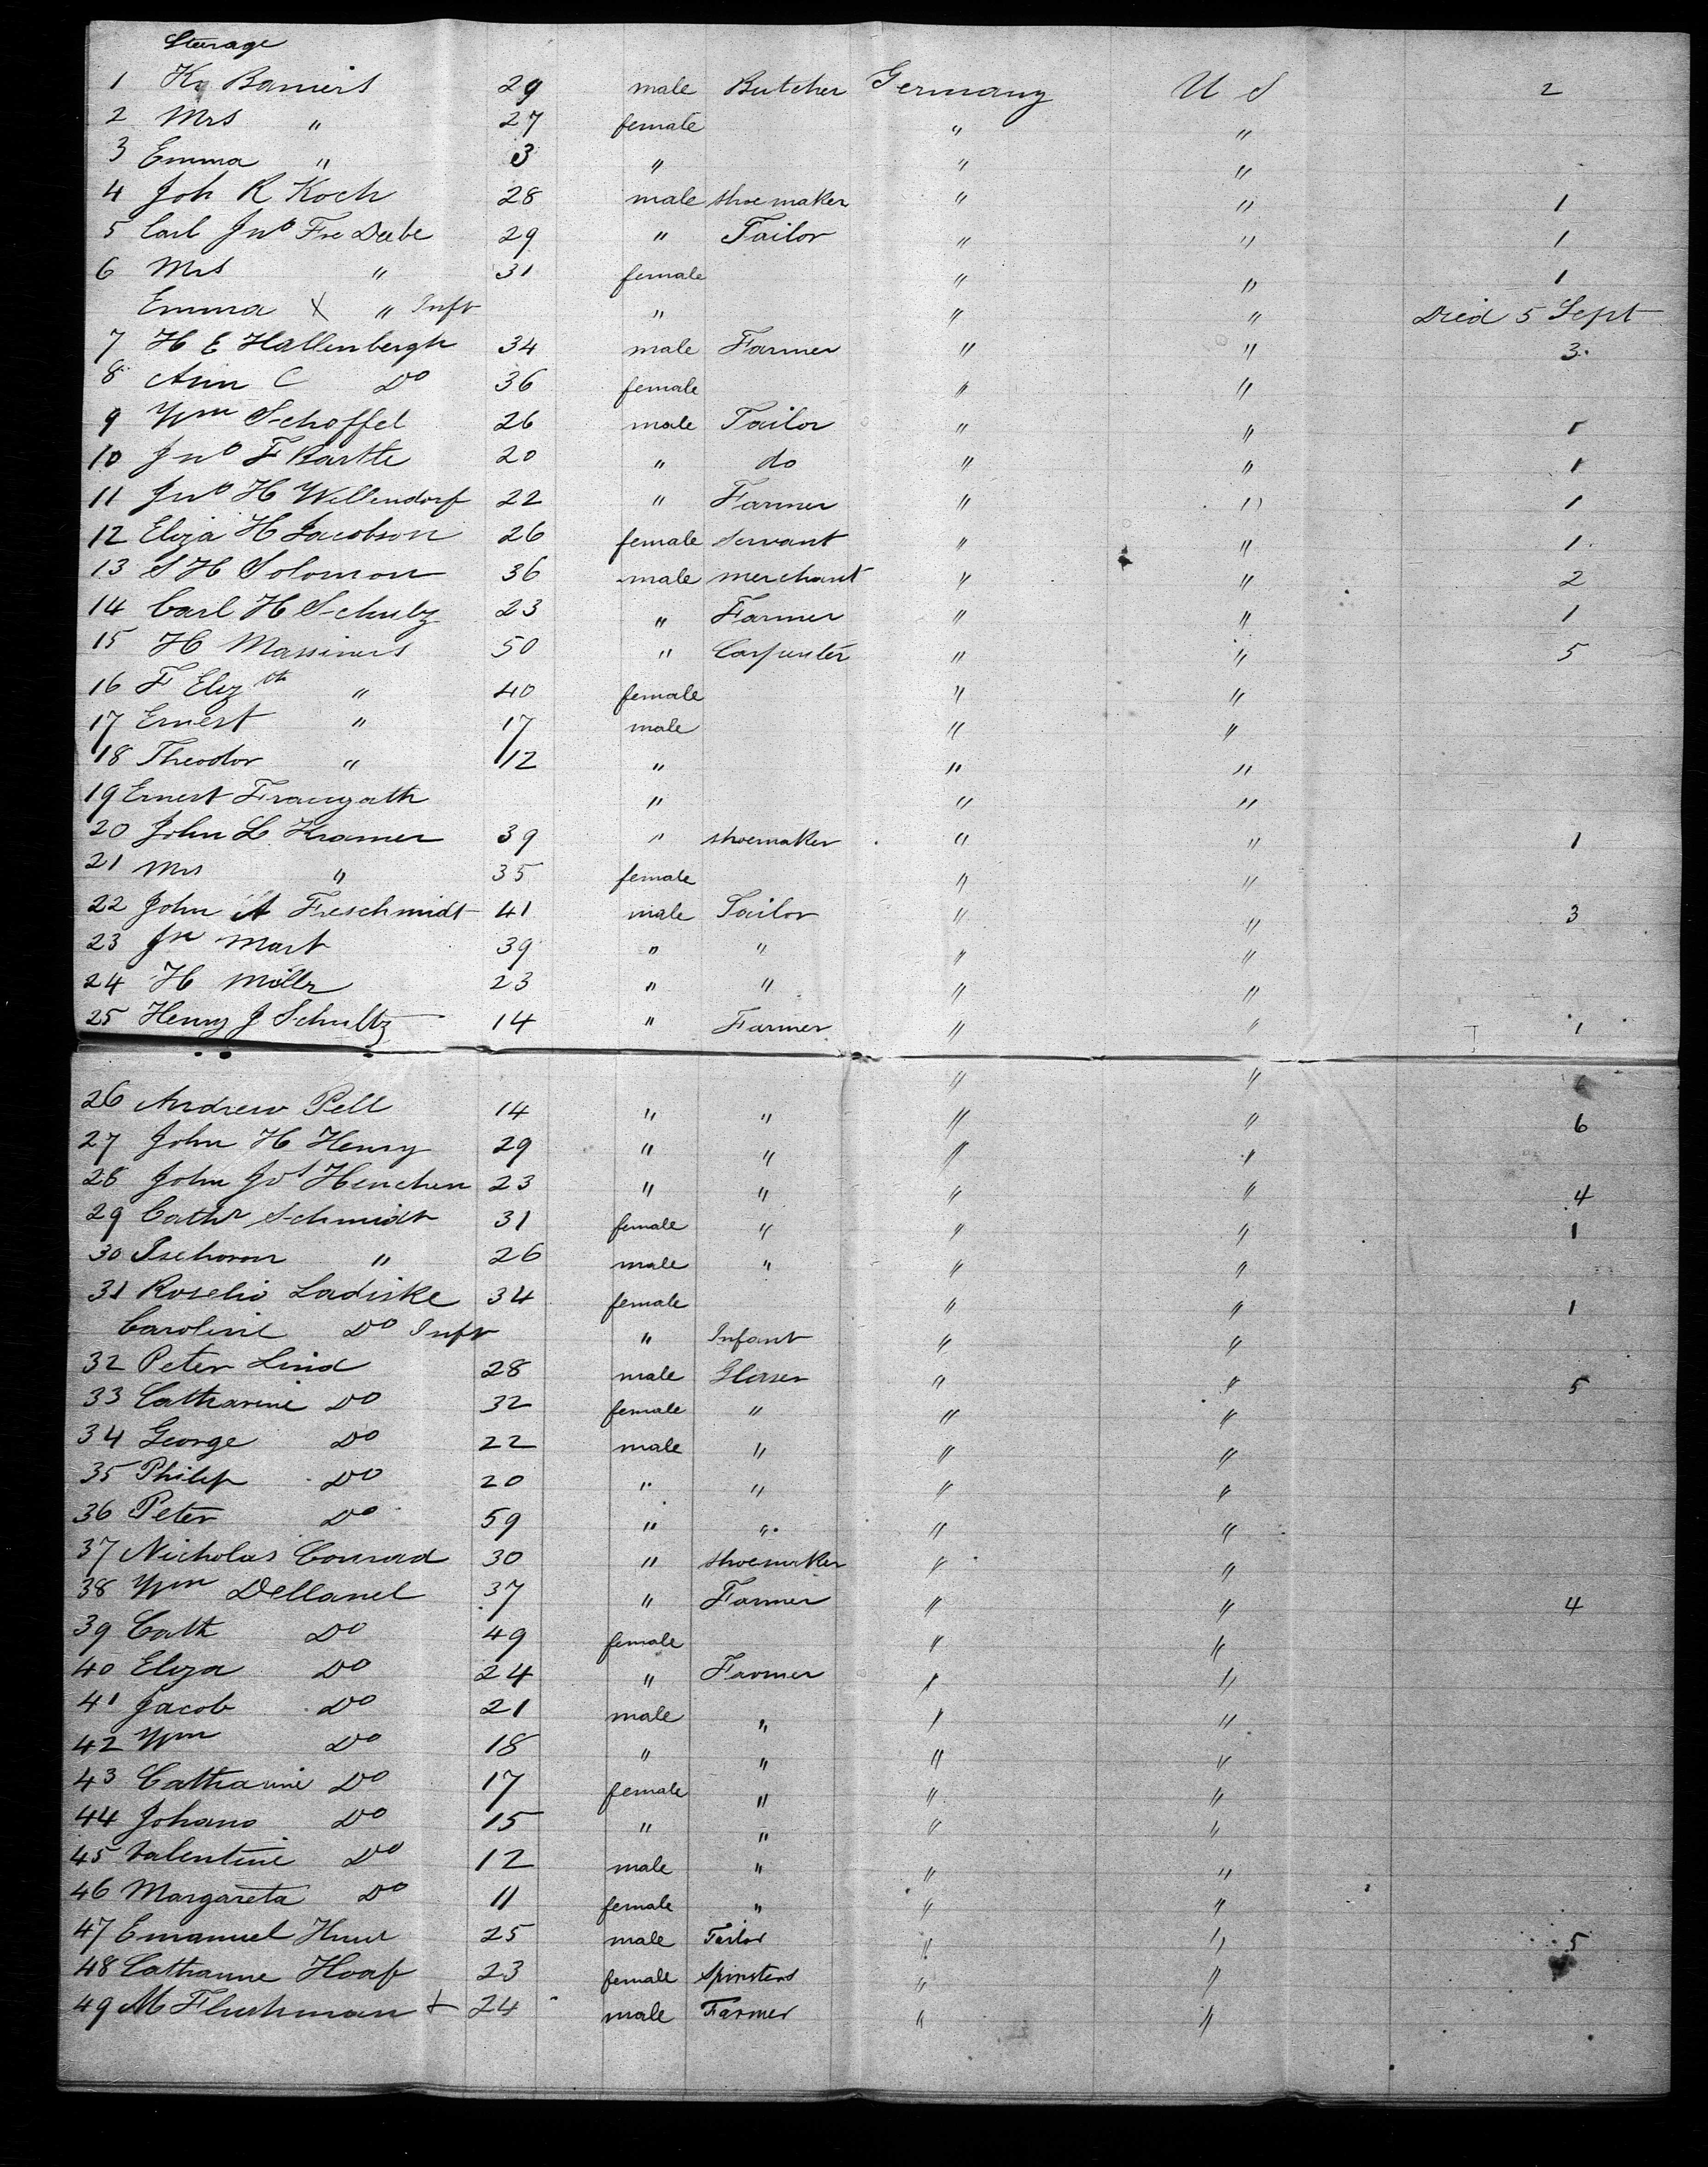 Steerage
1 Baniers 29 male Butcher Germany U S 2
2 Mrs " 27 female " "
3 Emma " 3 " " "
4 Joh R Koch 28 male shoemaker " " 1
5 Carl Jno Fre Dube 29 " Tailor " " 1
6 Mrs " 31 female " " 1
Emma X " Inft " " " Died 5 Sept
7 H E Hallenbergh 34 male Farmer " " 3
8 Ann C Do 36 female " "
9 Wm Schoffel 26 male Tailor " " 1
10 Jno F Bartte 20 " do " " 1
11 Jno H Wellendorf 22 " Farmer " " 1
12 Eliza H Jacobson 26 female Servant " " 1
13 S H Solomon 36 male merchant " " 2
14 Carl H Schulz 23 " Farmer " " 1
15 H Massiners 50 " Carpenter " " 5
16 F Elizth " 40 female " "
17 Ernest " 17 male " "
18 Theodor " 12 " " "
19 Ernest " " "
20 John L Kramer 39 " shoemaker " " 1
21 Mrs " 35 female " "
22 John A Freschmidt 41 male Tailor " " 3
23 Jn Mart 39 " " " "
24 H Möller 23 " " " "
25 Henry J Schultz 14 " Farmer " " 1
" "
26 Andrew Pell 14 " " " " 6
27 John H Henry 29 " " " "
28 John Jos Henchen 23 " " " " 4
29 Cathr Schmidt 31 female " " " 1
30 " 26 male " " "
31 Roselio Ladiske 34 female " " 1
Caroline Do Inft " Infant " "
32 Peter Lind 28 male " " 5
33 Catharine Do 32 female " " "
34 George Do 22 male " " "
35 Philip Do 20 " " " "
36 Peter Do 59 " " " "
37 Nicholas Conrad 30 " shoemaker " "
38 Wm Dellanel 37 " Farmer " " 4
39 Cath Do 49 female " "
40 Eliza Do 24 " Farmer " "
41 Jacob Do 21 male " " "
42 Wm Do 18 " " " "
43 Catharine Do 17 female " " "
44 Johano Do 15 " " " "
45 Valentine Do 12 male " " "
46 Margareta Do 11 female " " "
47 Emanuel 25 male Tailor " " 5
48 Catharine Hoaf 23 female Spinsters " "
49 M Flushman + 24 male Farmer " "